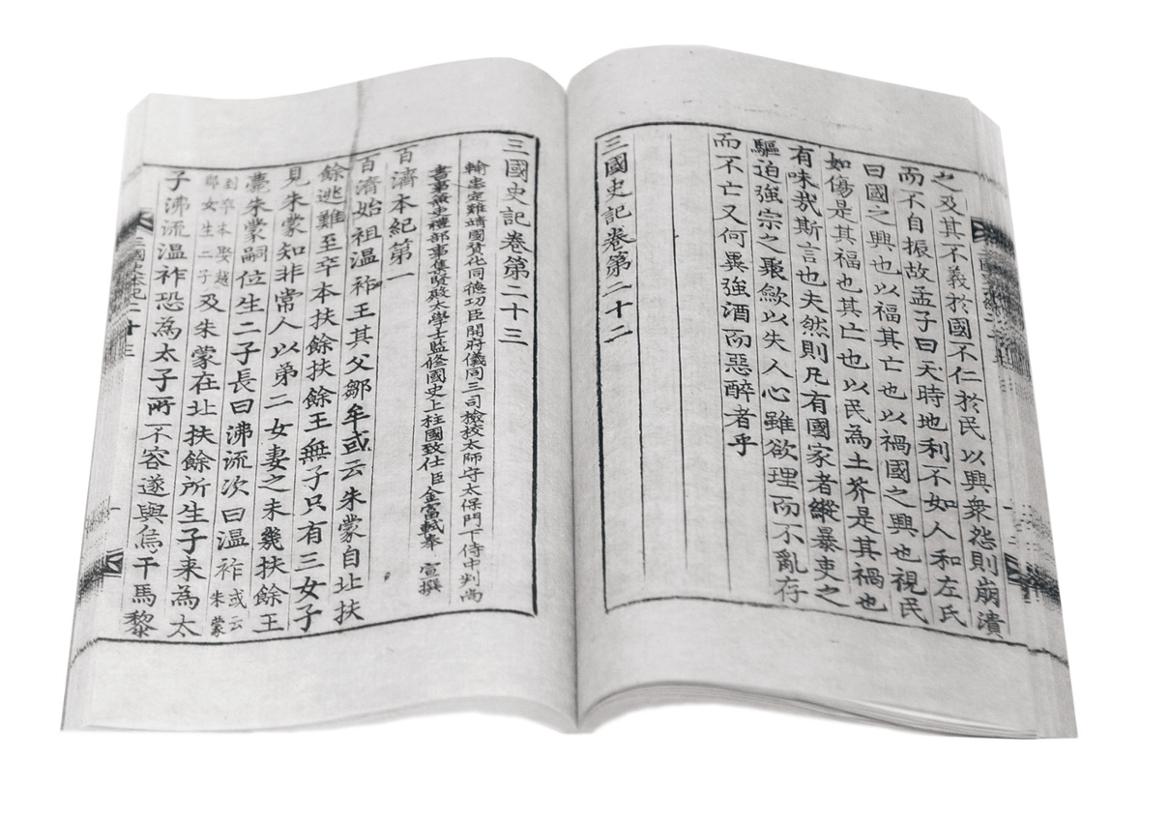 之及其不義於國不仁於民以興衆怨則崩潰
而不自振故孟子曰天時地利不如人和左氏
曰國之興也以福其亡也以禍國之興也視民
如傷是其福也其亡也以民為土芥是其禍也
有味哉斯言也夫然則凡有國家者縱暴吏之
驅迫強宗之聚歛以失人心雖欲理而不亂存
而不亡又何異強酒而惡醉者乎
三國史記卷第二十二
三國史記卷第二十三
輸忠定難靖國賛化同德功臣開府儀同三司檢校太師守太保門下侍中判尚
書事兼吏禮部事集賢殿太學士監修國史上柱國致仕臣金富軾奉 宣撰
百濟本紀第一
百濟始祖温祚王其父鄒牟或云朱蒙自北扶
餘逃難至卒本扶餘扶餘王無子只有三女子
見朱蒙知非常人以弟二女妻之未幾扶餘王
薨朱蒙嗣位生二子長曰沸流次曰温祚或云朱蒙
到卒本娶越郡女生二子及朱蒙在北扶餘所生子来為太
子沸流温祚恐為太子所不容遂與烏干馬黎